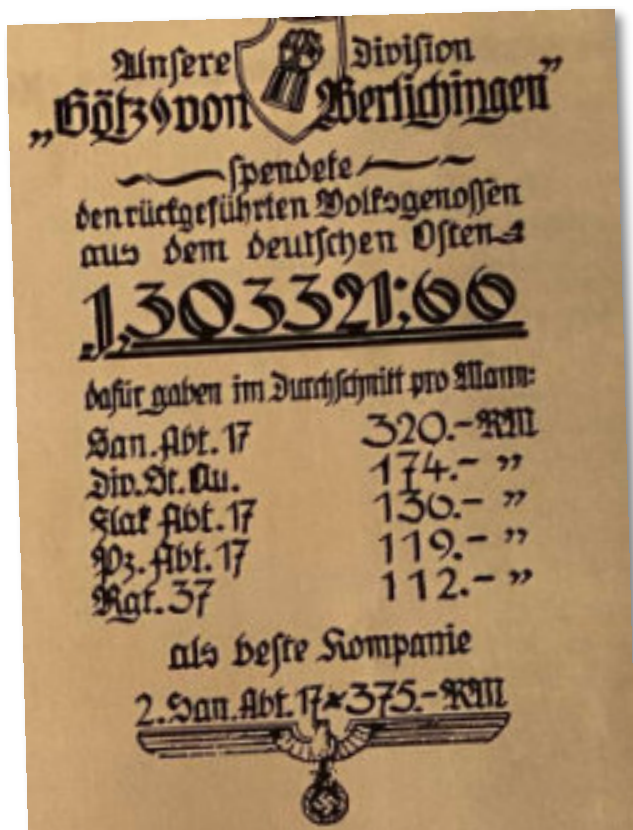 Unsere Division
„Götz von Berlichingen”
spendete
den rückgeführten Volksgenossen
aus dem deutschen Osten
1,303321,66
dafür gaben im Durchschnitt pro Mann:
San. Abt. 17 320.- RM
Div. St. Qu. 174.- ”
Flak Abt. 17 130.- ”
Pz. Abt. 17 119.- ”
Rgt. 37 112.- ”
als beste Kompanie
2. San. Abt. 17 375.- RM